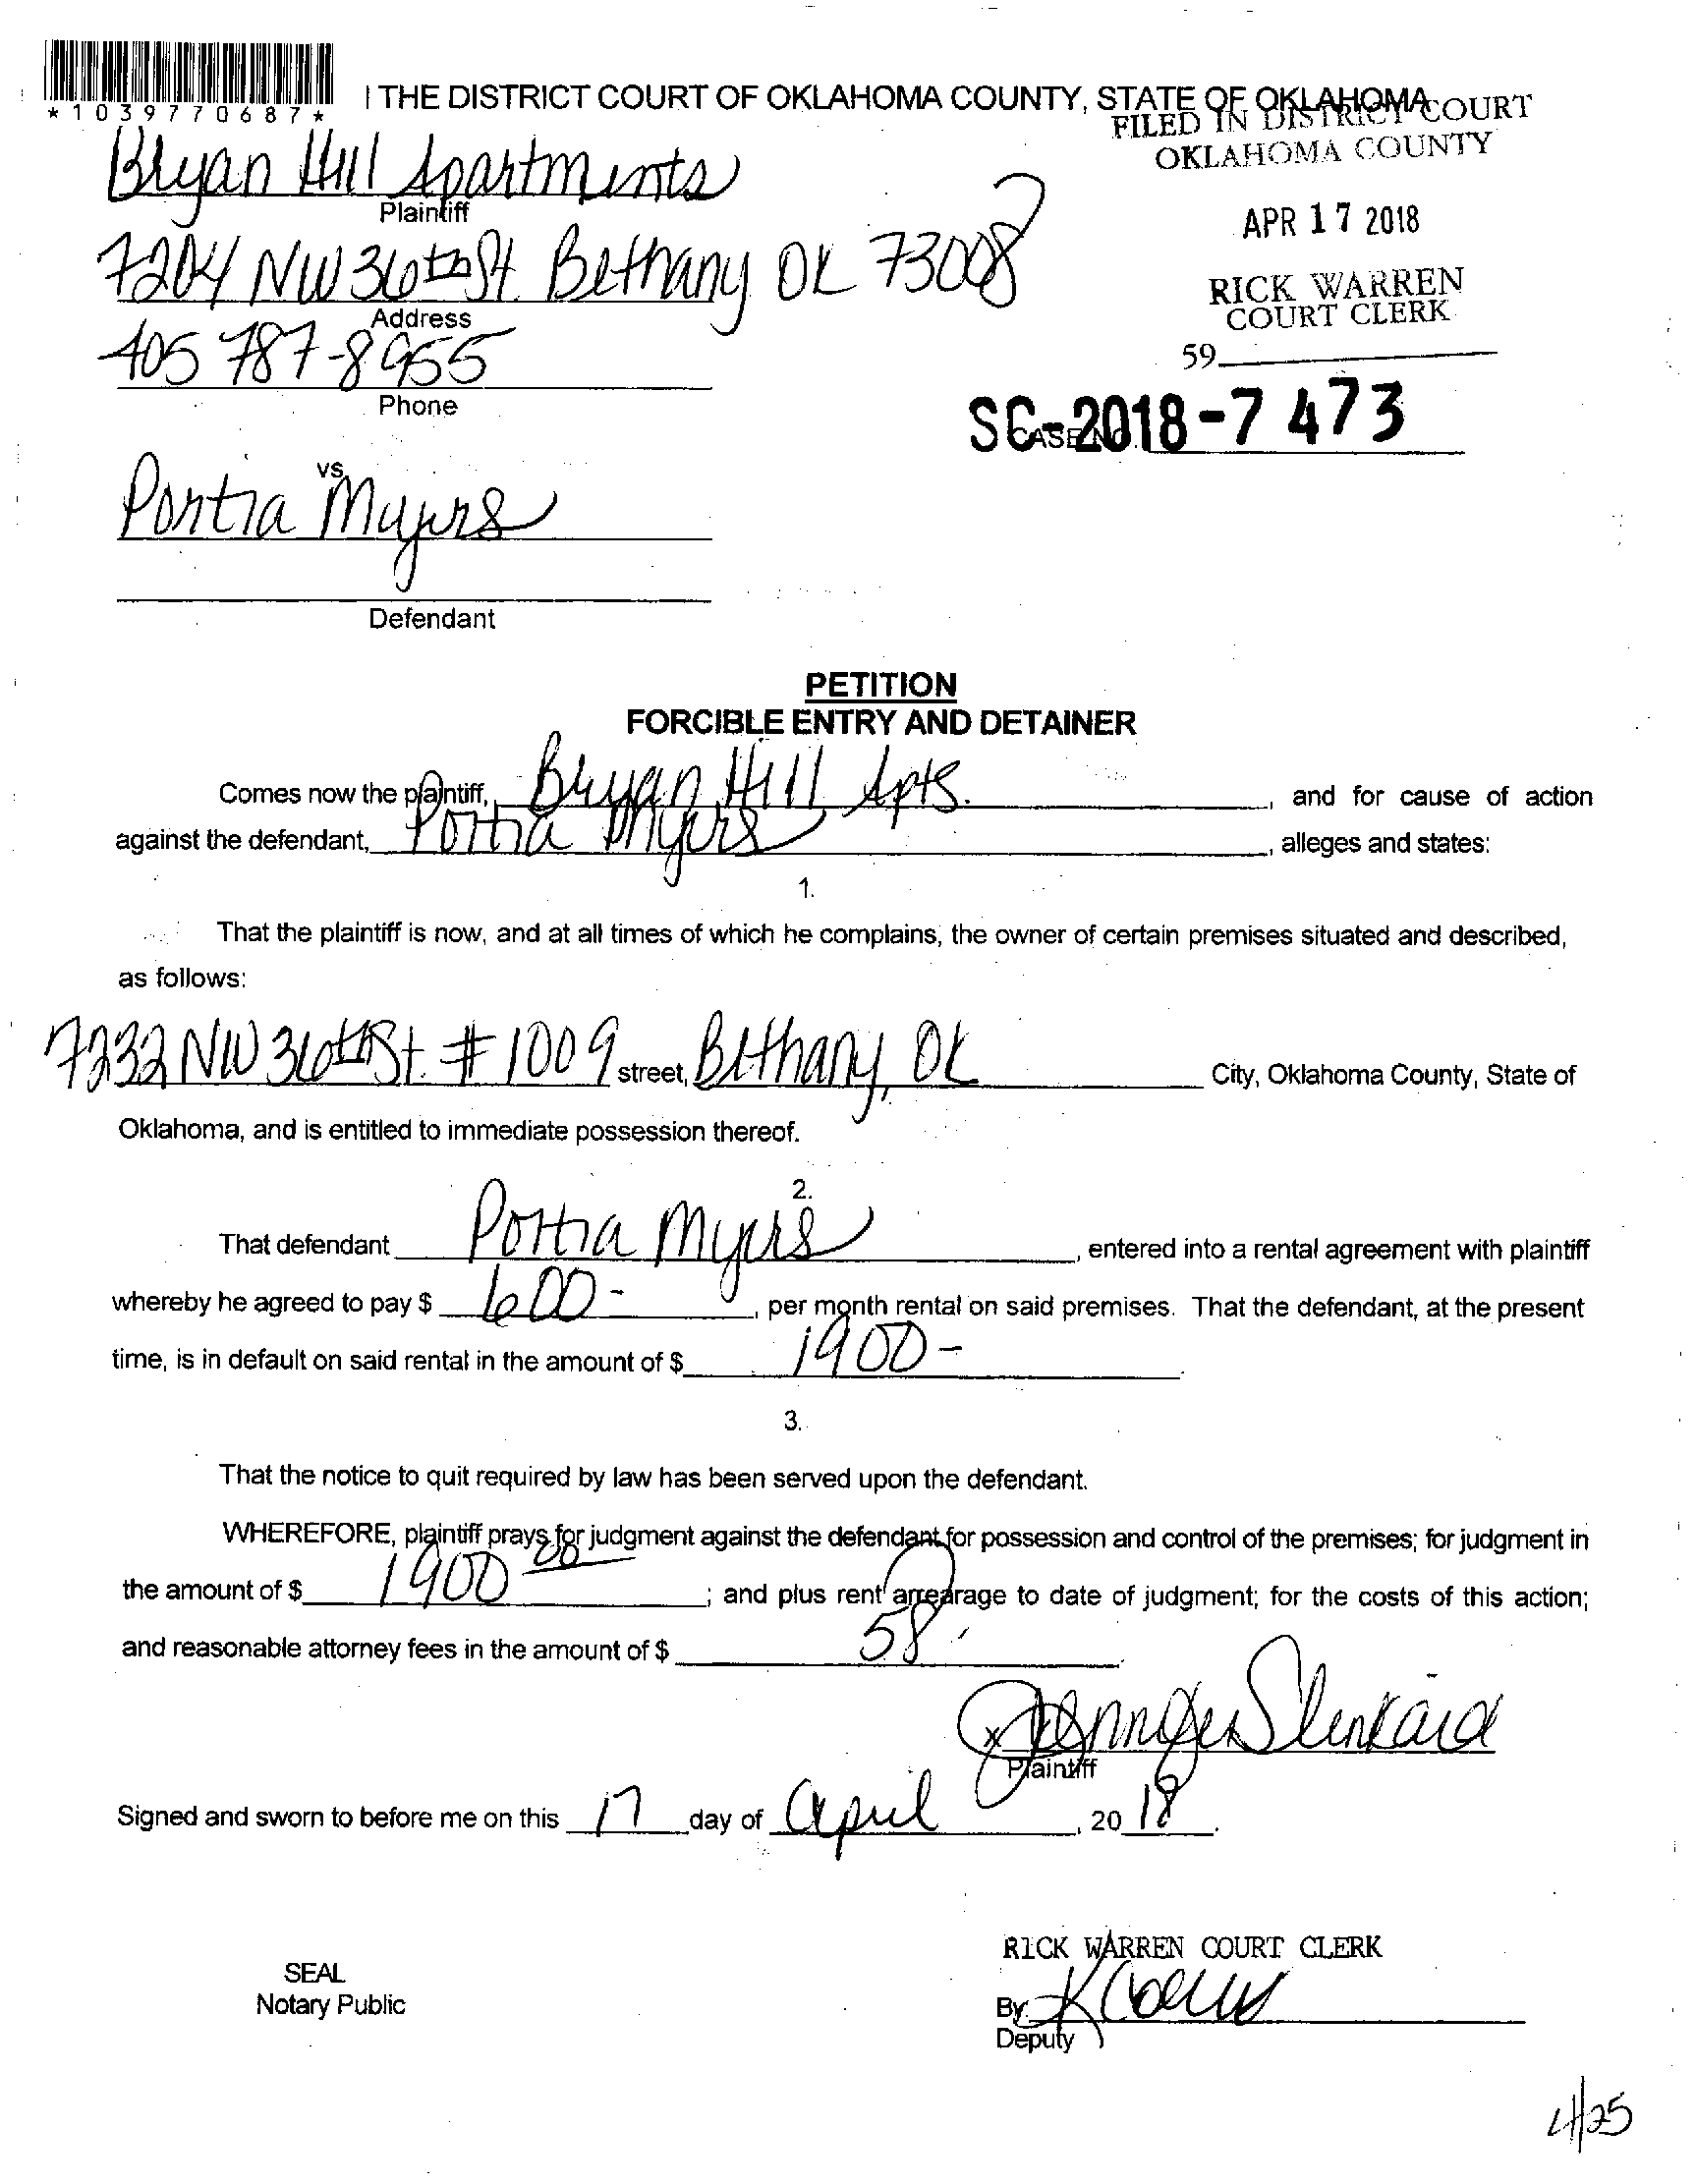 *1039770687*
THE DISTRICT COURT OF OKLAHOMA COUNTY, STATE OF OKLAHOMA
FILED IN DISTRICT COURT
OKLAHOMA COUNTY
Bryan Hill Apartments
Plaintiff
APR 17 2018
7204 NW 36th St. Bethany OK 73008
Address
RICK WARREN
COURT CLERK
405 787-8955
Phone
59
SC-2018-7473
CASE NO.
vs.
Portia Myers
Defendant
PETITION
FORCIBLE ENTRY AND DETAINER
Comes now the plaintiff, Bryan Hill Apts. , and for cause of action
against the defendant, Portia Myers , alleges and states:
1.
That the plaintiff is now, and at all times of which he complains, the owner of certain premises situated and described,
as follows:
7232 NW 36th St. #1009 street, Bethany, OK City, Oklahoma County, State of
Oklahoma, and is entitled to immediate possession thereof.
2.
That defendant Portia Myers , entered into a rental agreement with plaintiff
whereby he agreed to pay $ 600- , per month rental on said premises. That the defendant, at the present
time, is in default on said rental in the amount of $ 1900-
3.
That the notice to quit required by law has been served upon the defendant.
WHEREFORE, plaintiff prays for judgment against the defendant for possession and control of the premises; for judgment in
the amount of $ 1900 00 ; and plus rent arrearage to date of judgment; for the costs of this action;
and reasonable attorney fees in the amount of $ 58.
x Jennifer Slenkard
Plaintiff
Signed and sworn to before me on this 17 day of april , 2018.
RICK WARREN COURT CLERK
SEAL
Notary Public
By
Deputy
4/25